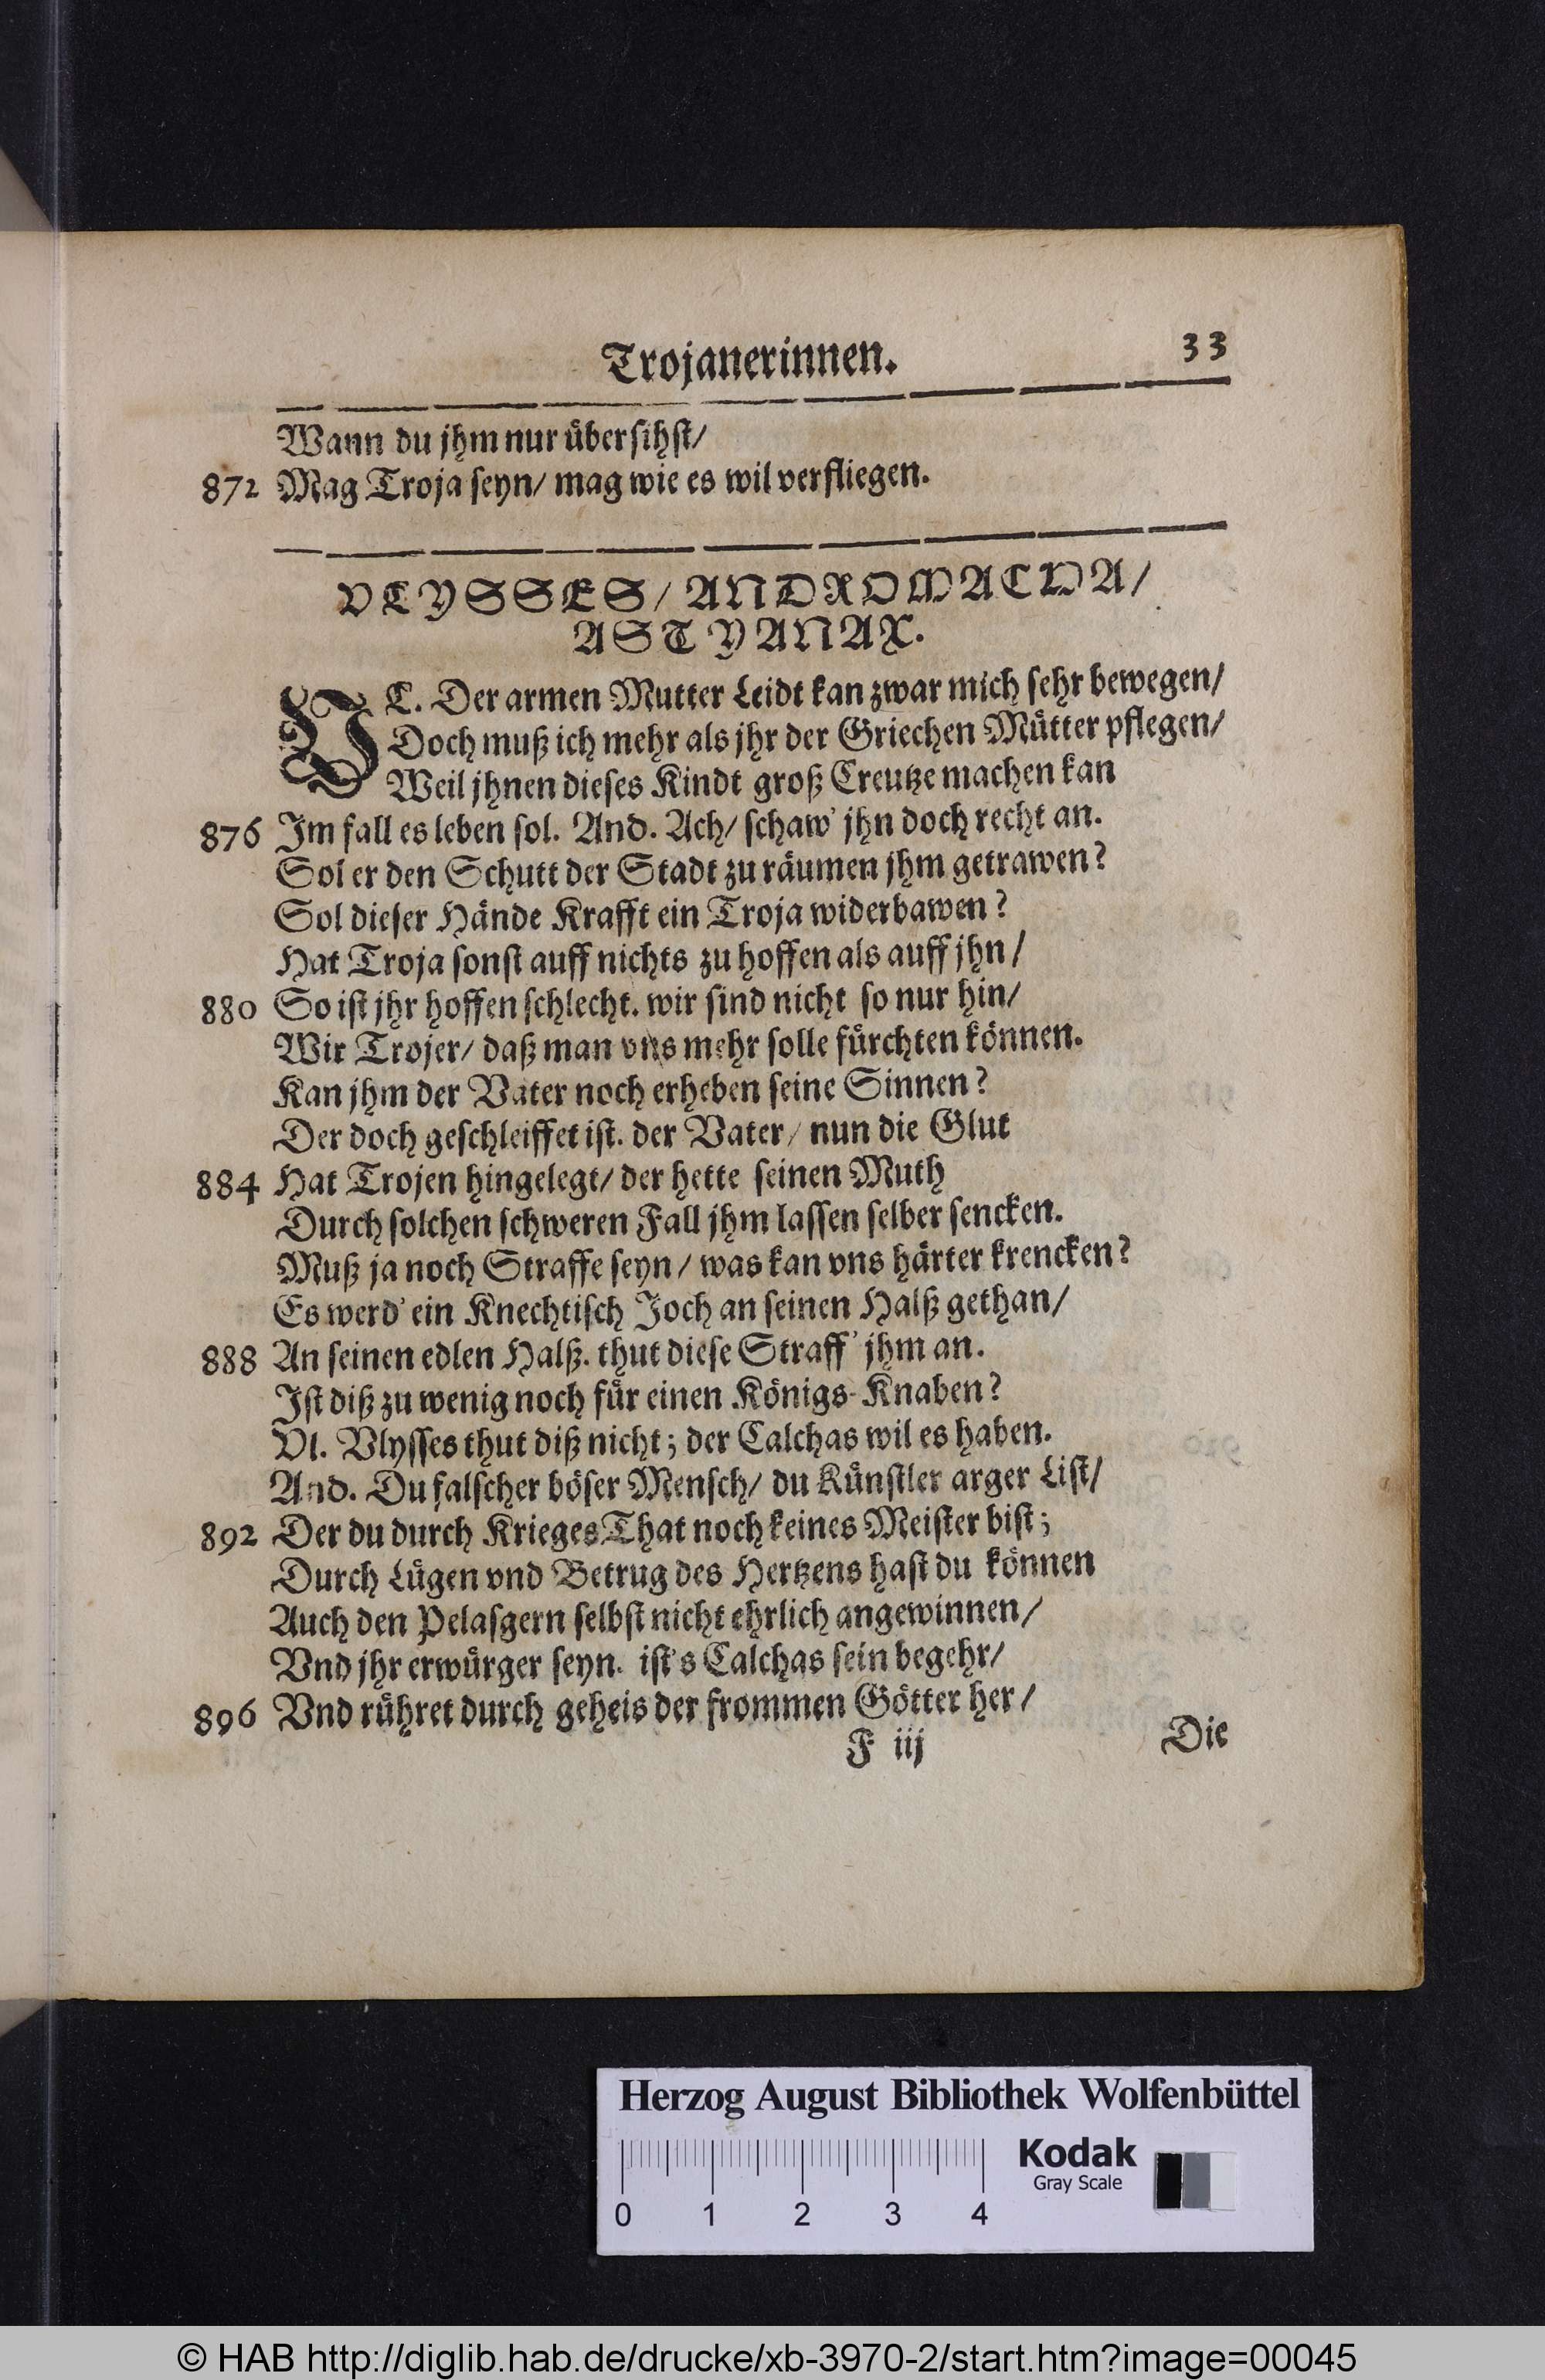 Trojanerinnen. 33
Wann du jhm nur übersihst/
872 Mag Troja seyn/ mag wie es wil verfliegen.
VLYSSES/ ANDROMACHA/
ASTYANAX.
VL. Der armen Mutter Leidt kan zwar mich sehr bewegen/
Doch muß ich mehr als jhr der Griechen Mütter pflegen/
Weil jhnen dieses Kindt groß Creutze machen kan
876 Im fall es leben sol. And. Ach/ schaw' jhn doch recht an.
Sol er den Schutt der Stadt zu räumen jhm getrawen?
Sol dieser Hände Krafft ein Troja widerbawen?
Hat Troja sonst auff nichts zu hoffen als auff jhn/
880 So ist jhr hoffen schlecht. wir sind nicht so nur hin/
Wir Trojer/ daß man vns mehr solle fürchten können.
Kan jhm der Vater noch erheben seine Sinnen?
Der doch geschleiffet ist. der Vater/ nun die Glut
884 Hat Trojen hingelegt/ der hette seinen Muth
Durch solchen schweren Fall jhm lassen selber sencken.
Muß ja noch Straffe seyn/ was kan vns härter krencken?
Es werd' ein Knechtisch Joch an seinen Halß gethan/
888 An seinen edlen Halß. thut diese Straff' jhm an.
Ist diß zu wenig noch für einen Königs-Knaben?
Vl. Vlysses thut diß nicht; der Calchas wil es haben.
And. Du falscher böser Mensch/ du Künstler arger List/
892 Der du durch Krieges That noch keines Meister bist;
Durch Lügen vnd Betrug des Hertzens hast du können
Auch den Pelasgern selbst nicht ehrlich angewinnen/
Vnd jhr erwürger seyn. ist's Calchas sein begehr/
896 Vnd rühret durch geheis der frommen Götter her/
F iij Die
Herzog August Bibliothek Wolfenbüttel
Kodak
Gray Scale
0 1 2 3 4
© HAB http://diglib.hab.de/drucke/xb-3970-2/start.htm?image=00045